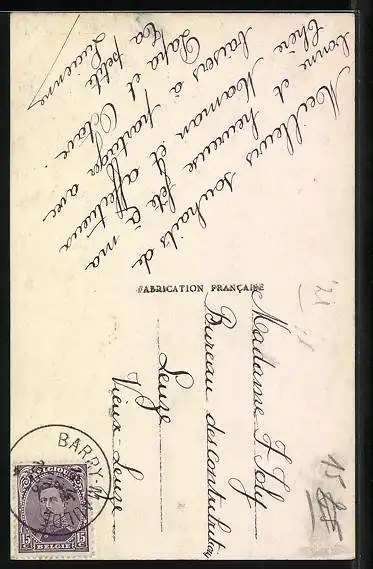 Meilleurs souhaits de
bonne et heureuse fête à ma
chère Maman et affectueux
baisers à partager avec
Papa et Octave.
Ta petite
Lucienne
FABRICATION FRANÇAISE
Madame F. Joly
Bureau des contributions
Leuze
Vieux-Leuze
'21
15
BARRY-M
BELGIQUE
15 c 15 c
BELGIË